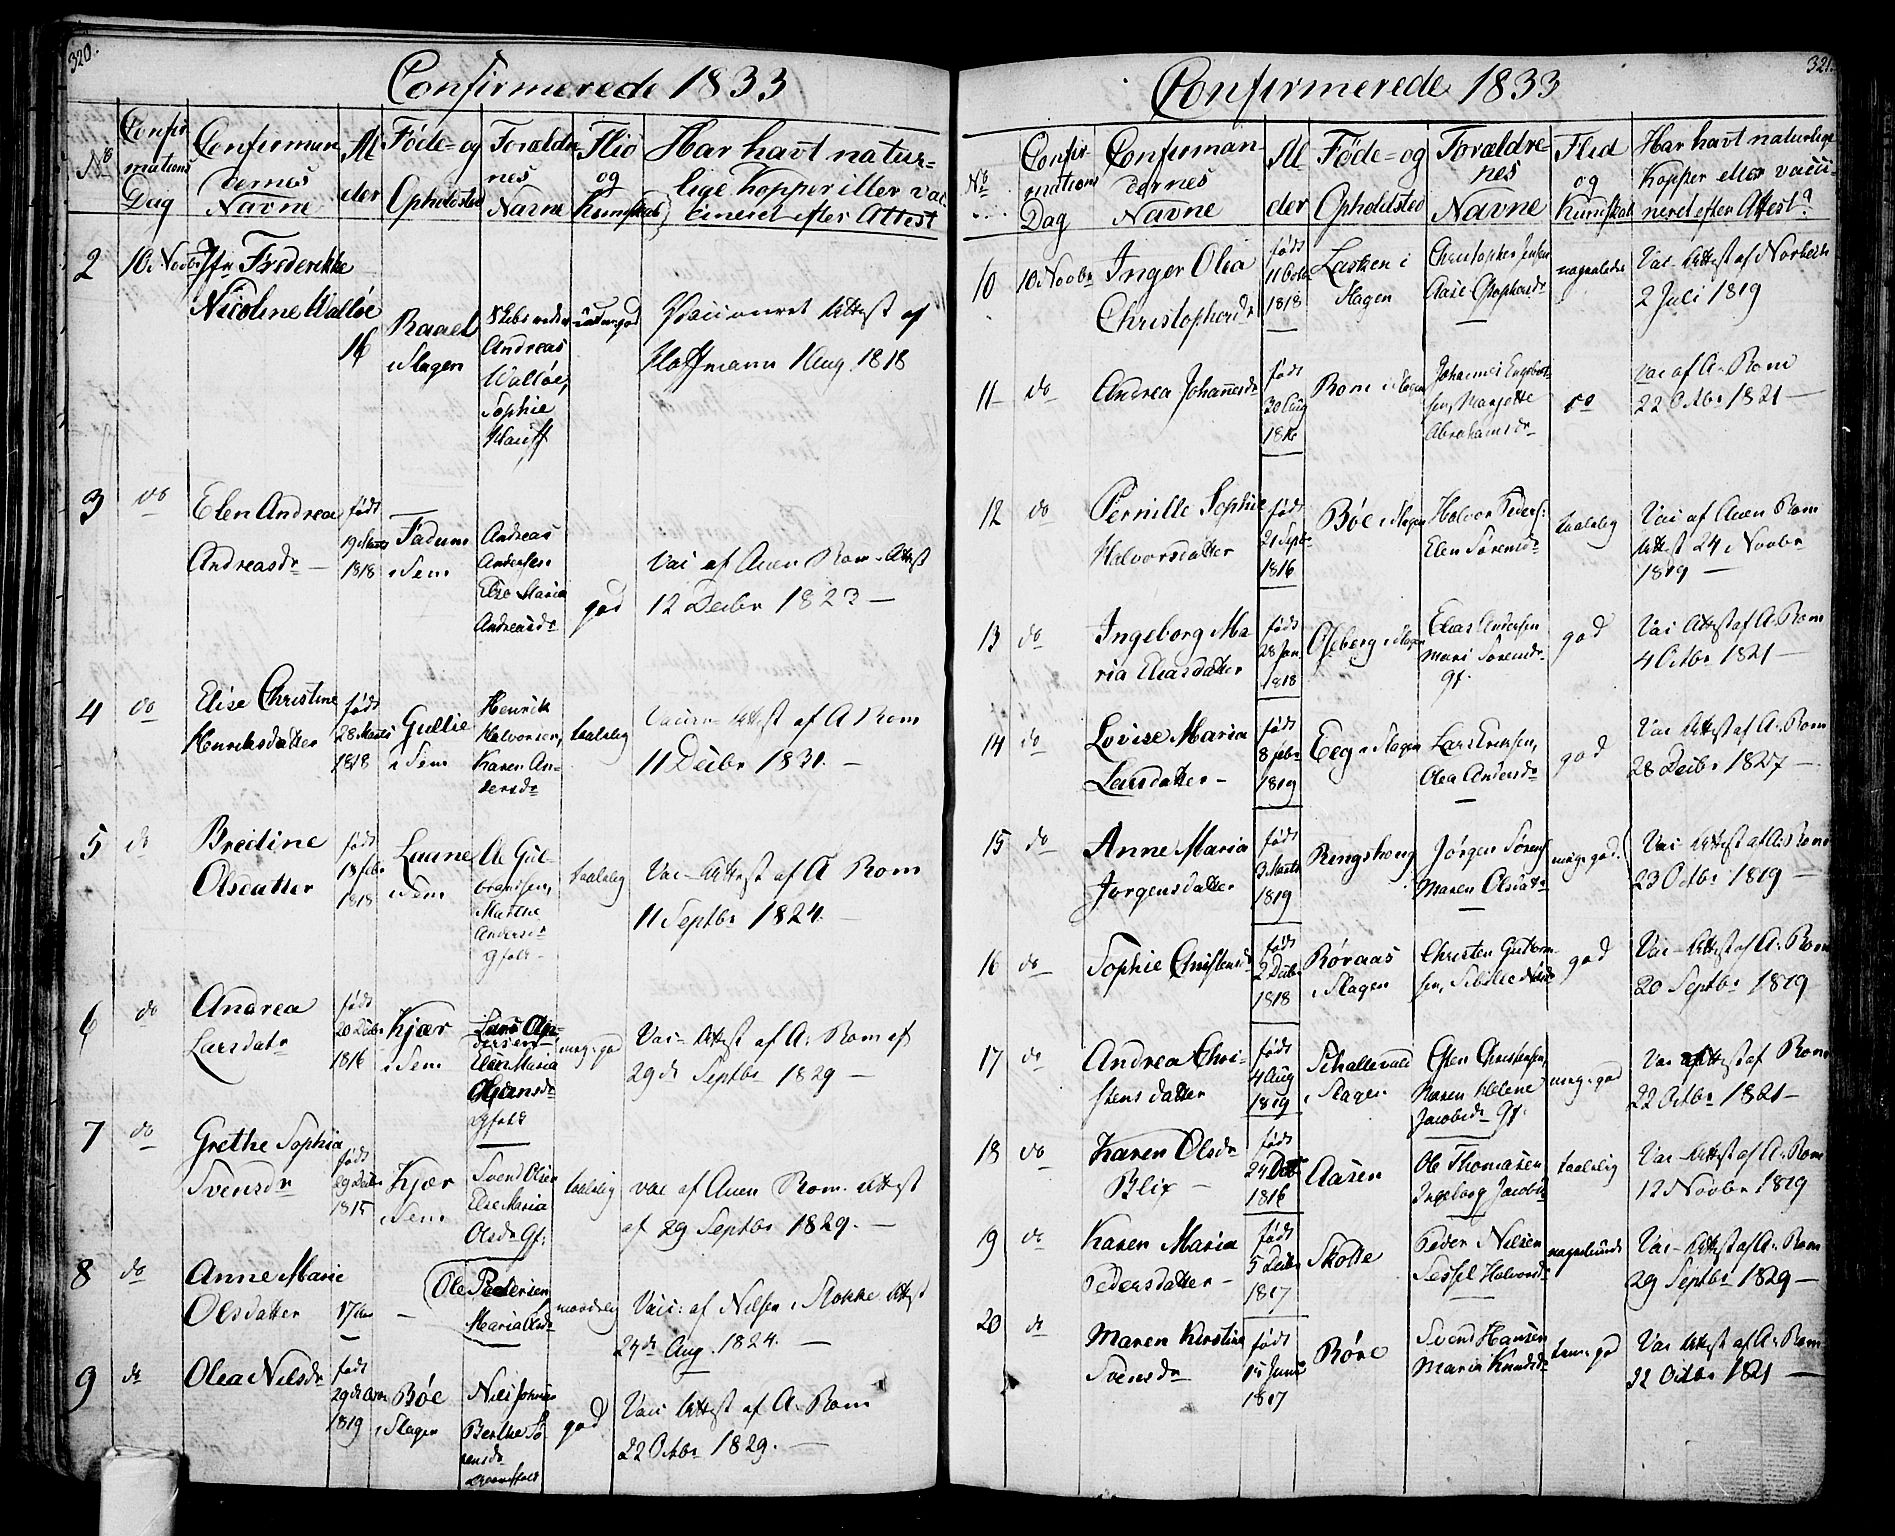 320.
Confirmerede 1833
No
Confir
mations
Dag
Confirman
dernes
Navne
Al
der
Føde- og
Opholdsted
Forældre
nes
Navne
Flid
og
Kundskab
Har havt natur-
lige Kopper eller vac
cineret efter Attest
2
10 Novbr
Jfr Frederikke
Nicoline Walløe
16
Raael
i Slagen
Andreas
Walløe,
Sophie
Hauff
Vaccineret Attest af
Hoffmann 1 Aug 1818
3
do
Elen Andrea
Andreasdr
født
19 Marts
1818
Fadum
i Sem
Andreas
Andersen
Else Maria
Andreasdr
god
Vac af Auen Rom Attest
12 Decbr 1823
4
do
Elise Christine
Henriksdatter
født
28 Marts
1818
Gullie
i Sem
Henrik
Halvorsen,
Karen An-
dersdr
taalelig
Attest af A Rom
11 Decbr 1831.
5
do
Bredine
Olsdatter
født
1818
i Sem
Ole Gul-
brandsen,
Marthe
Andersdr
Gfolk
taalelig
Vac- Attest af A Rom
11 Septbr 1824.
6
do
Andrea
Larsdatr
født
20 Decbr
1816
Kjær
i Sem
Lars An-
dersen
Elen Maria
Gfolk
meg. god
Vac- Attest af A. Rom af
29de Septbr 1829
7
do
Grethe Sophia
Svensdr
født
29 Decbr
1815
Kjær
i Sem
Svend Olsen
Else Maria
Olsdr Gf:
taalelig
vac af Auen Rom Attest
af 29 Septbr 1829.
8
do
Anne Marie
Olsdatter
17 Aar
Ole Pedersen
Maria Olsdr
maadelig
Vacc: af Nilsen i Stokke Attest
24de Aug. 1824.
9
do
Olea Nilsdr
født
1819
Bøe
i Slagen
Nils Johnsen
Berthe Sø
rensdr
god
Vacc Attest af A. Rom
22 Octbr 1829.
321.
Confirmerede 1833
No
Confir
mations
Dag
Confirman
dernes
Navne
Al
der
Føde- og
Opholdsted
Forældre
nes
Navne
Flid
og
Kundskab
Har havt naturlige
Kopper eller vacci-
neret efter Attest?
10
10 Novbr
Inger Olea
Christophersdr
født
11 Octbr
1818
i
Slagen
Christopher Jensen
Aase
Vac- Attest af
2 Juli 1819
11
do
Andrea Johannesdr
født
30 Aug
1816
Rom i Slagen
Johannes Engebret-
sen,
Abrahamsdr
do
vac af A. Rom
22 Octbr 1821
12
do
Pernille Sophie
Halvorsdatter
født
21 Septbr
1816
Bøe i Slagen
Halvor Peders:
Elen Sørensdr
taalelig
Vac af Auen Rom
Attest 24 Novbr
1819
13
do
Ingeborg Ma
ria Eliasdatter
født
28 Jan
1818
i Slagen
Elias Andersen
Mari Sørensdr
Gf.
god
Vac Attest af A. Rom
4 Octbr 1821
14
do
Lovise Maria
Larsdatter
født
8 febr
1819
Eeg i Slagen
Lars Eriksen,
Olea Andersdr
god
Vac Attest af A. Rom
28 Decbr 1827
15
do
Anne Maria
Jørgensdatter
født
3 Marts
1819
Ringshoug
Jørgen Sørens
Maren Olsdatr
meg. god.
Vac- Attest af A. Rom
23 Octbr 1819
16
do
Sophie Christensdr
født
2 Decbr
1818
Røraas
i Slagen
Christen Guttorm
sen, Sibille
god
Vac- Attest af A. Rom
20 Septbr 1819
17
do
Andrea Chri-
stensdatter
født
4 Aug
1819
Schallevald
i Slagen
Christensen,
Karen Helene
Jacobsdr Gf.
meg. god
Vac Attest af Rom
22 Octbr 1821
18
do
Karen Olsdr
Blix
født
24 Octbr
1816
Aasen
Ole Thomasen
Ingeborg Jacobsdr
taalelig
Vac- Attest af A. Rom
12 Novbr 1819
19
do
Karen Maria
Pedersdatter
født
5 Decbr
1817
Skotte
Peder Nilsen
Sessel Halvorsdr
Vac- Attest af A. Rom
29 Septbr 1829
20
do
Maren Kirstine
Svensdr
født
15 Juni
1817
Røre
Svend Hansen
Maria Knudsdr
Vac Attest af A. Rom
22 Octbr 1821